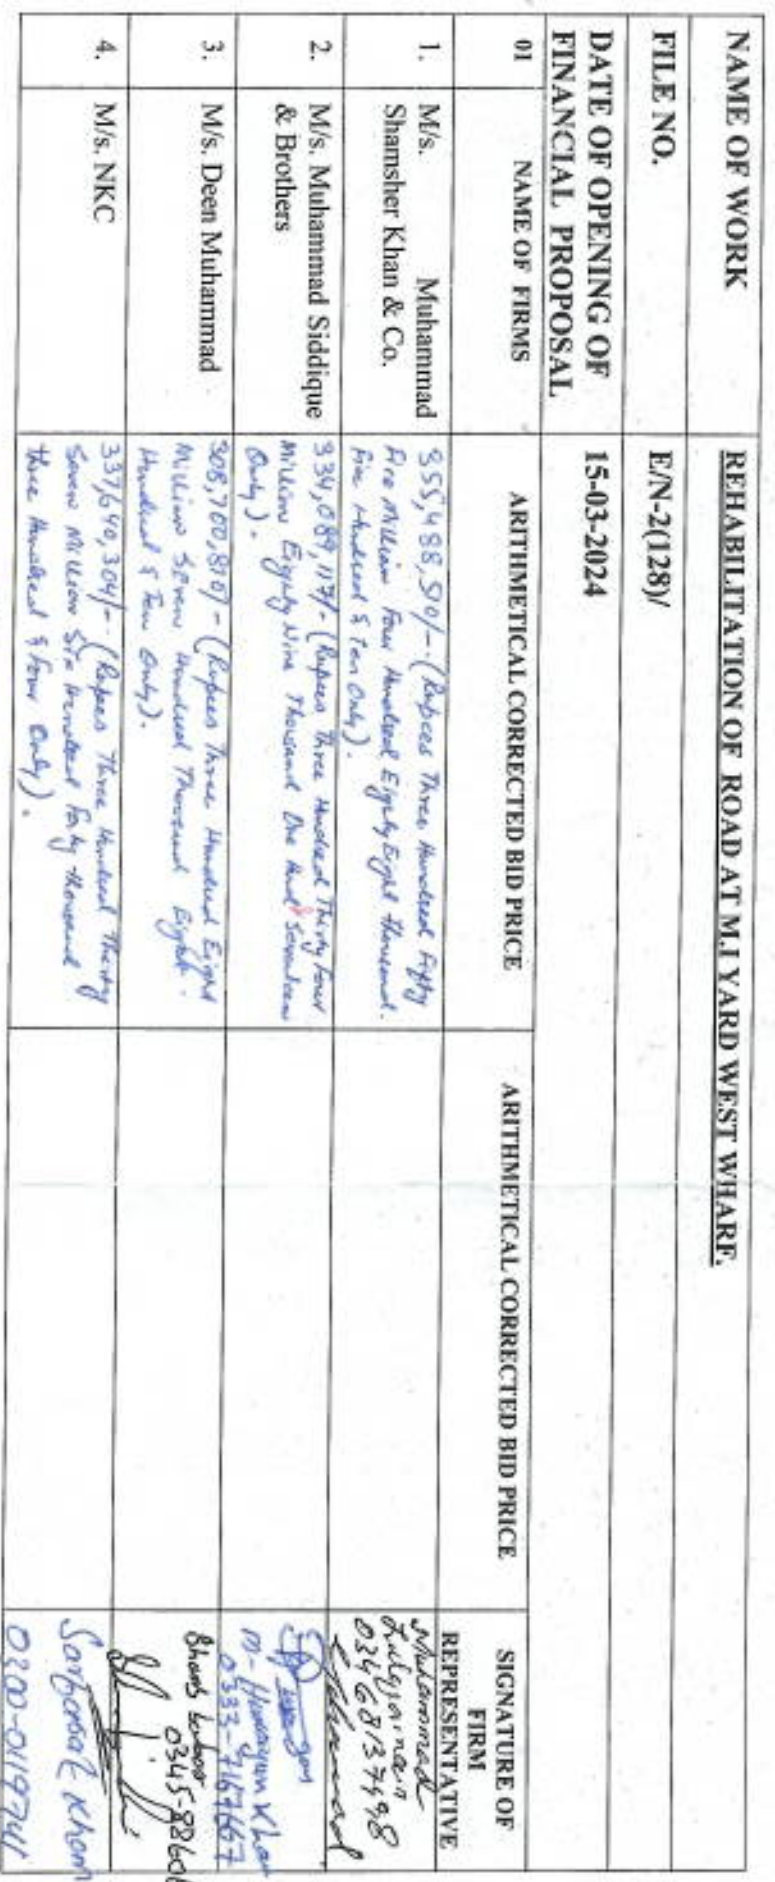 NAME OF WORK
REHABILITATION OF ROAD AT M.I YARD WEST WHARF.
FILE NO.
E/N-2(128)/
DATE OF OPENING OF
FINANCIAL PROPOSAL
15-03-2024
01
NAME OF FIRMS
ARITHMETICAL CORRECTED BID PRICE
ARITHMETICAL CORRECTED BID PRICE
SIGNATURE OF
FIRM
REPRESENTATIVE
1.
M/s. Muhammad
Shamsher Khan & Co.
355,488,510/- (Rupees Three Hundred Fifty
Five Million Four Hundred Eighty Eight thousand
Five Hundred & Ten Only).
Muhammad
03468137498
2.
M/s. Muhammad Siddique
& Brothers
334,089,117/- (Rupees Three Hundred Thirty Four
Million Eighty Nine Thousand One Hund Seventeen
Only).
M- Humayun Khan
0333-7167667
3.
M/s. Deen Muhammad
308,700,810/- (Rupees Three Hundred Eight
Million Seven Hundred Thousand Eight
Hundred & Ten Only).
4.
M/s. NKC
337,640,304/- (Rupees Three Hundred Thirty
Seven Million Six Hundred Forty thousand
three Hundred & Four Only).
Sarfaraz Khan
0200-0119741